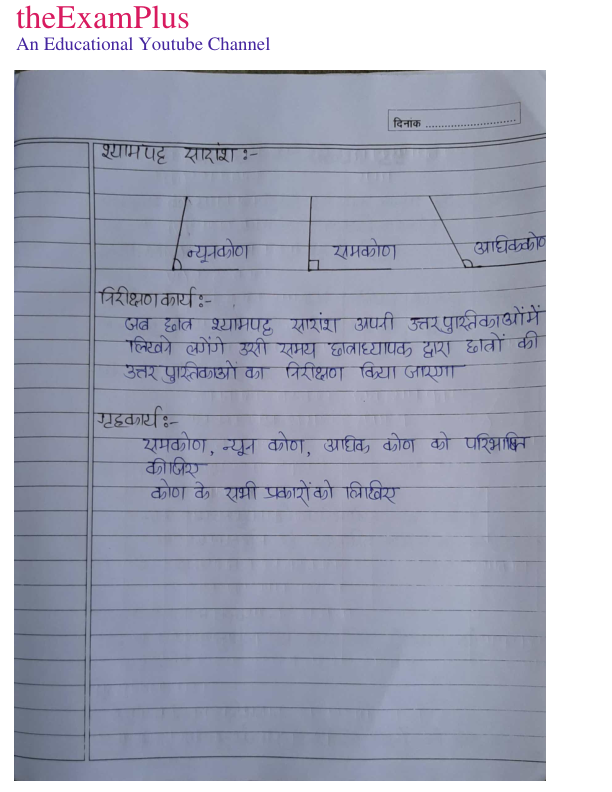 theExamPlus
An Educational Youtube Channel
दिनांक ..............................
श्यामपट्ट सारांश :-
न्यूनकोण
समकोण
अधिककोण
निरीक्षण कार्य :-
जब छात्र श्यामपट्ट सारांश अपनी उत्तर पुस्तिकाओं में
लिखने लगेंगे उसी समय छात्राध्यापक द्वारा छात्रों की
उत्तर पुस्तिकाओं का निरीक्षण किया जाएगा
गृहकार्य :-
समकोण, न्यून कोण, अधिक कोण को परिभाषित
कीजिए
कोण के सभी प्रकारों को लिखिए